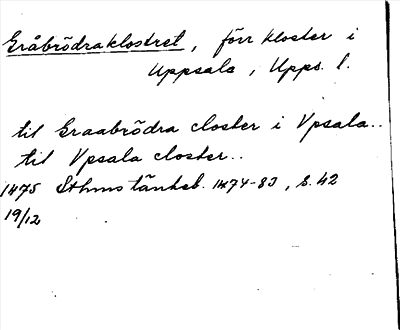 Gråbrödraklostret, förr kloster i
Uppsala, Upps. l.
til Graabrödra closter i Vpsala..
til Vpsala closter..
1475 Sthms tänkeb. 1474-83, s. 42
19/12